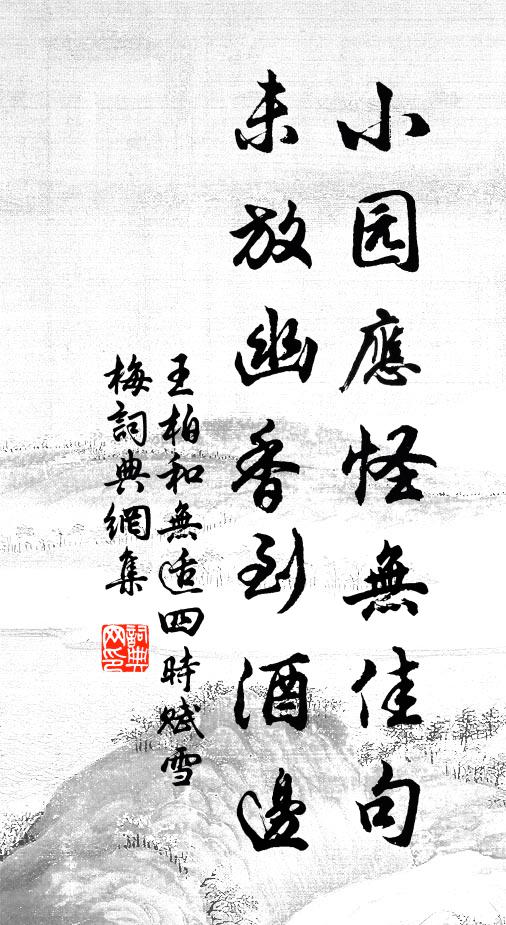 小园應怪無佳句
未放幽香到酒邊
王柏和無适四時赋雪
梅詞典網集
詞典网印